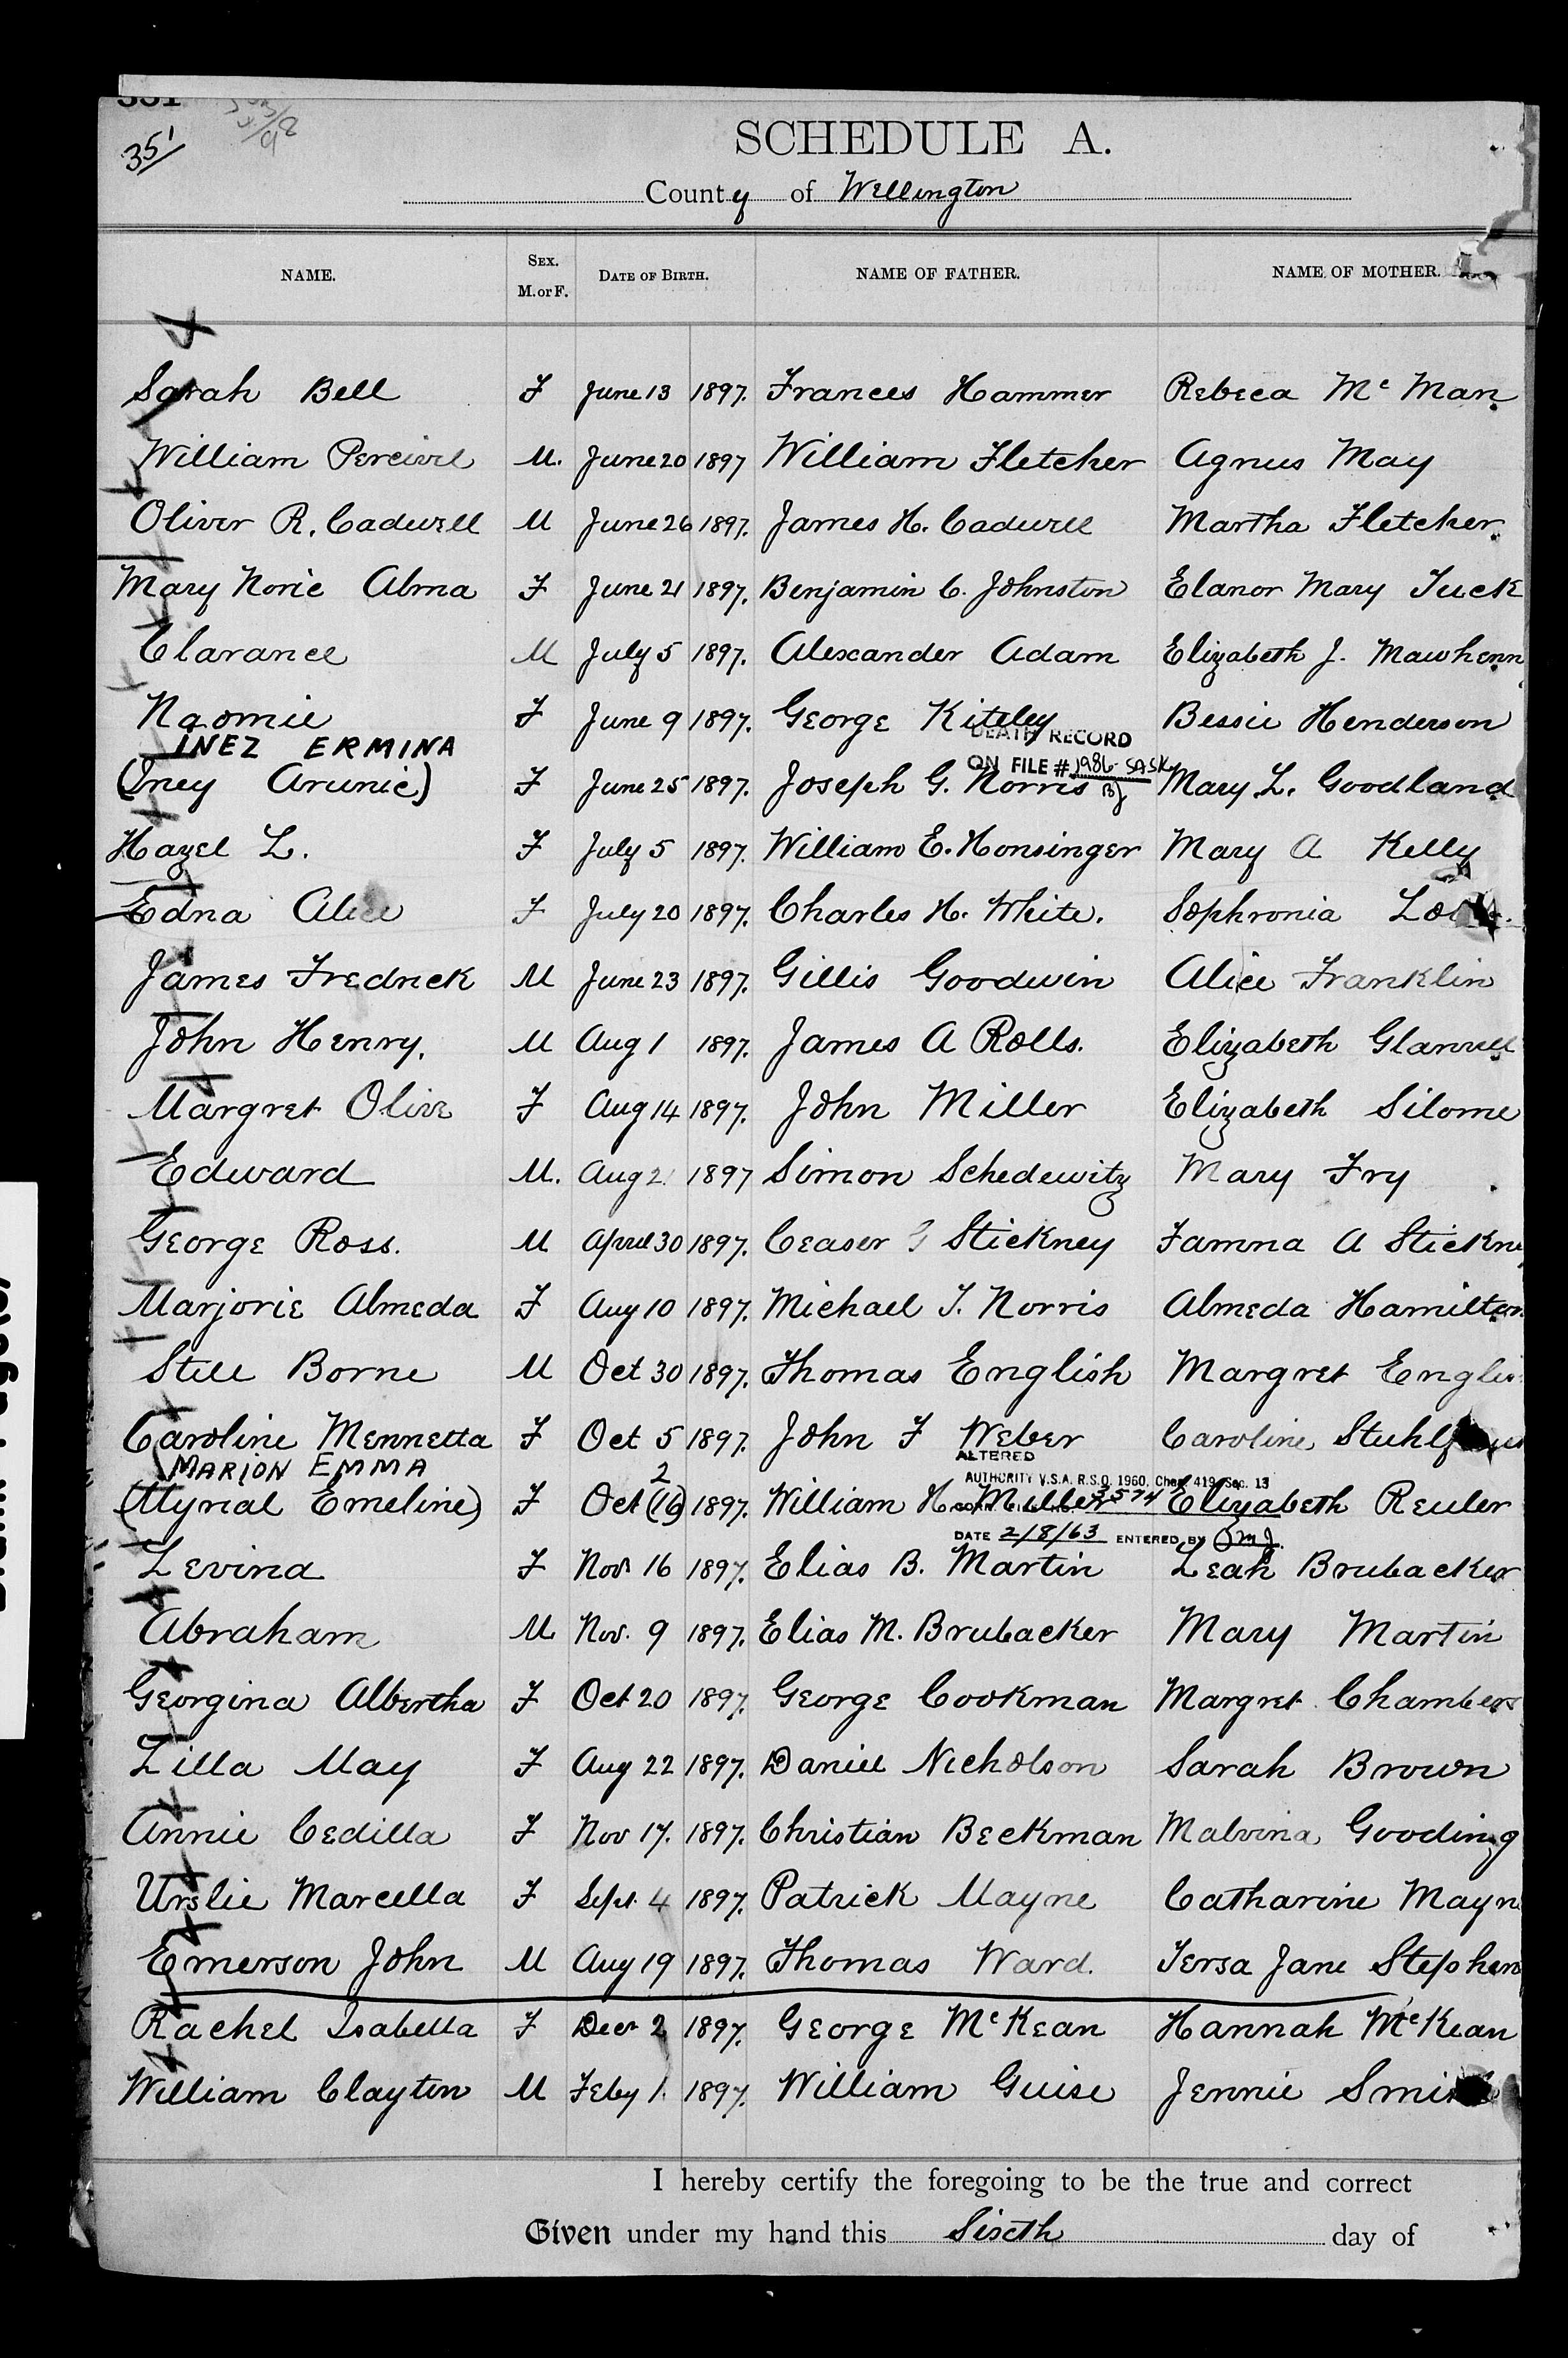 351
SCHEDULE A.
County of Wellington
NAME. SEX. M. or F. DATE OF BIRTH. NAME OF FATHER. NAME OF MOTHER.
Sarah Bell F June 13 1897. Frances Hammer Rebeca Mc Man
William Percivel M. June 20 1897 William Fletcher Agnus May
Oliver R. Cadwell M June 26 1897. James H. Cadwell Martha Fletcher
Mary Norie Alma F June 21 1897. Benjamin C. Johnston Elanor Mary Tuck
Clarance M July 5 1897. Alexander Adam Elizabeth J. Mawhenn
Naomie F June 9 1897. George Kiteley Bessie Henderson
INEZ ERMINA DEATH RECORD
ON FILE # 1986 SASK
(Iney Arunie) F June 25 1897. Joseph G. Norris Mary L. Goodland
Hazel L. F July 5 1897. William E. Honsinger Mary A Kelly
Edna Alice F July 20 1897. Charles H. White. Sophronia
James Fredrick M June 23 1897. Gillis Goodwin Alice Franklin
John Henry. M Aug 1 1897. James A Rolls. Elizabeth
Margret Olive F Aug 14 1897. John Miller Elizabeth Silome
Edward M. Aug 2 1897 Simon Schedewitz Mary Fry
George Ross. M April 30 1897. Ceaser G Stickney Famna A Stickne
Marjorie Almeda F Aug 10 1897. Michael T. Norris Almeda Hamilton
Still Borne M Oct 30 1897. Thomas English Margret Englis
Caroline Mennetta F Oct 5 1897. John F Weber Caroline
MARION EMMA 2 ALTERED
AUTHORITY V.S.A. R.S.O. 1960, Chap. 419, Sec. 13
(Myrial Emeline) F Oct (16) 1897. William H. Miller 3574 Elizabeth Reuler
DATE 2/8/63 ENTERED BY
Levina F Nov 16 1897. Elias B. Martin Leah Brubacker
Abraham M Nov. 9 1897. Elias M. Brubacker Mary Martin
Georgina Albertha F Oct 20 1897. George Cookman Margret Chambers
Zilla May F Aug 22 1897. Daniel Nicholson Sarah Brown
Annie Cedilla F Nov 17. 1897. Christian Beckman Malvina Gooding
Urslie Marcella F Sept. 4 1897. Patrick Mayne Catharine Mayn
Emerson John M Aug 19 1897. Thomas Ward. Tersa Jane Stephen
Rachel Isabella F Decr 2 1897. George McKean Hannah McKean
William Clayton M Feby 1. 1897. William Guise Jennie Smith
I hereby certify the foregoing to be the true and correct
Given under my hand this Sixth day of